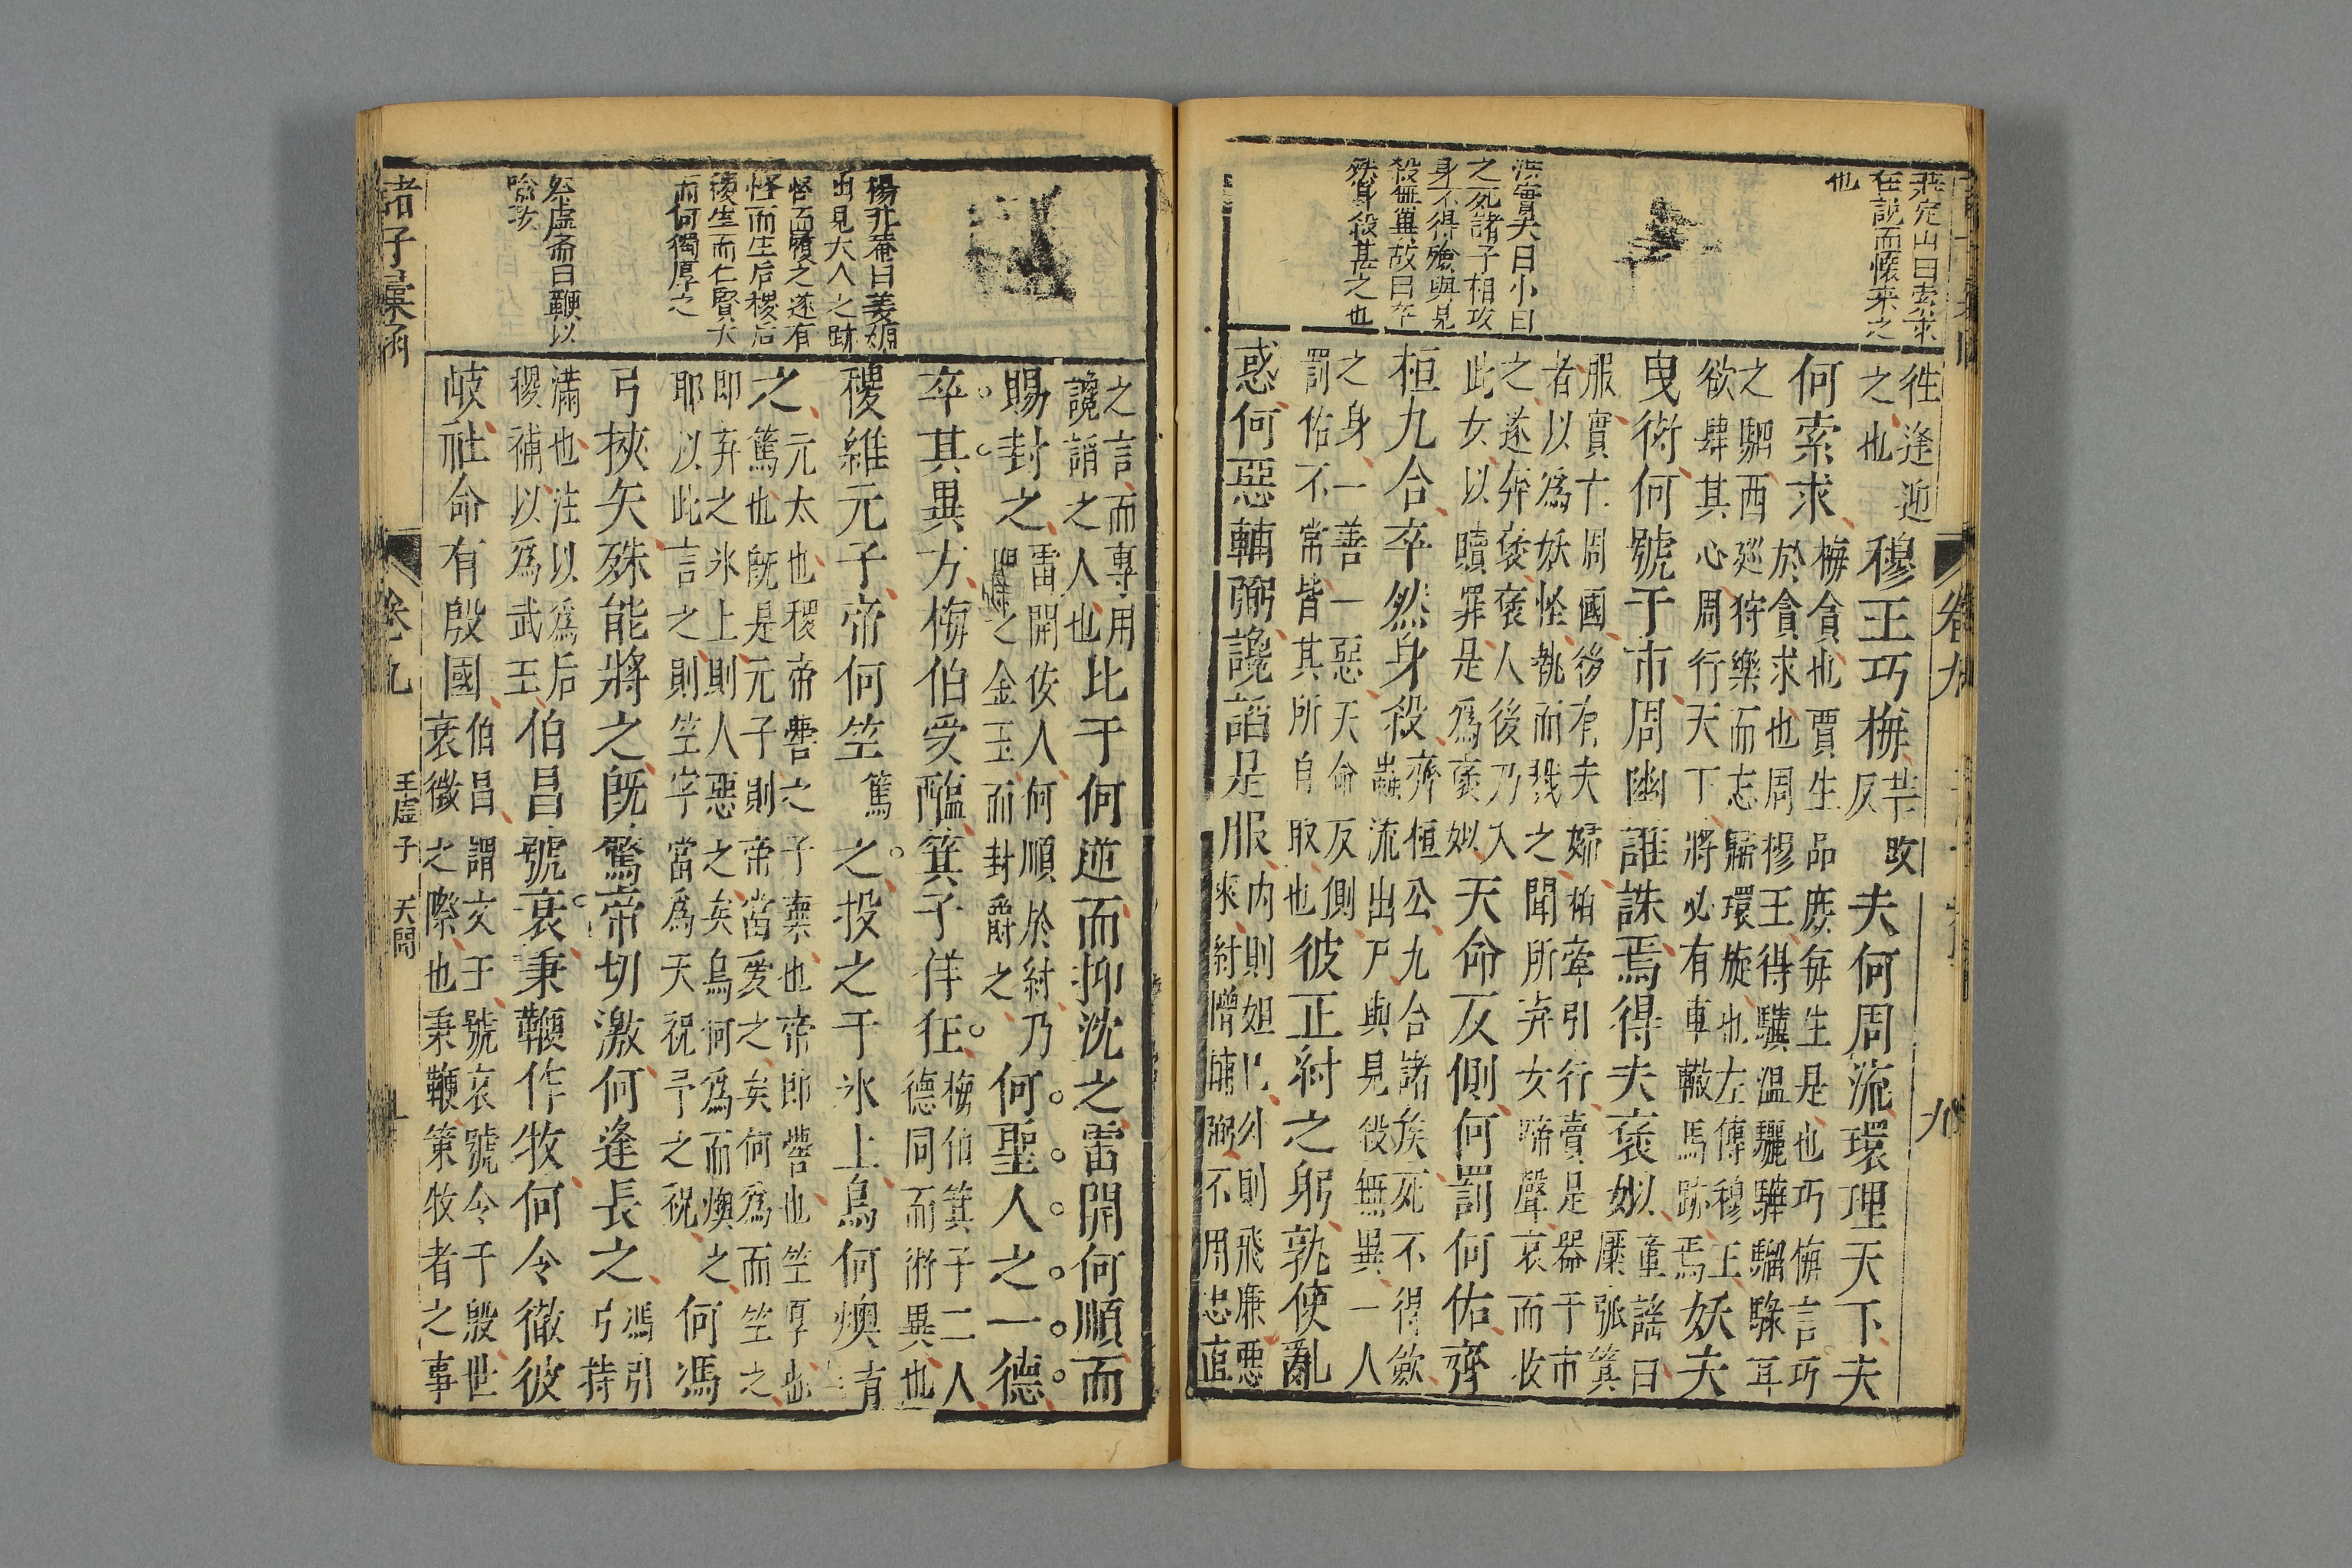 莊定山曰索求
在説而懷來之
也
洪實夫曰小白
之死諸子相攻
身不得殮與見
殺無異故曰卒
然身殺甚之也
徃逢迎
之也
穆王巧梅
反
夫何周流環理天下夫
何索求
梅貪也賈生品庶每生是也巧梅言巧
於貪求也周穆王得驥温驪驊騮騄耳
之駟西巡狩樂而忘歸環旋也左傳穆王
欲肆其心周行天下將必有車轍馬跡焉
妖夫
曳衒何號于市周幽誰誅焉得夫褒姒
童謡曰
檿弧箕
服實亡周國後有夫婦相牽引行賣是器于市
者以爲妖怪執而戮之聞所弃女啼聲哀而收
之遂奔褒褒人後乃入
此女以贖罪是爲褒姒
天命反側何罰何佑齊
桓九合卒然身殺
齊桓公九合諸矦死不得斂
蟲流出户與見殺無異一人
之身一善一惡天命反側
罰佑不常皆其所自取也
彼正紂之躬孰使亂
惑何惡輔弼讒謟是服
内則妲己外則飛廉惡
來紂憎輔弼不用忠直
卷九
九
之言而專用
讒謟之人也
比干何逆而抑沈之雷開何順而
賜封之
雷開佞人何順於紂乃
之金玉而封爵之
何聖人之一德
卒其異方梅伯受醢箕子佯狂
梅伯箕子二人
德同而術異也
稷維元子帝何竺
篤
之投之于氷上鳥何燠
之
元太也稷帝嚳之子棄也帝即嚳也竺厚也
篤也既是元子則帝當愛之矣何爲而竺之
即弃之氷上則人惡之矣鳥何爲而燠之
耶以此言之則竺字當爲天祝予之祝
何馮
弓挾矢殊能將之既驚帝切激何逢長之
馮引
弓持
滿也注以爲后
稷補以爲武王
伯昌號衰秉鞭作牧何令徹彼
岐社命有殷國
伯昌謂文王號衰號令于殷世
衰微之際也秉鞭策牧者之事
楊升菴曰姜嫄
出見大人之跡
怪而履之遂有
怪而生后稷后
稷生而仁賢天
而何獨厚之
虚齋曰鞭以
喻政
諸子彙函
卷九
玉虚子
天問